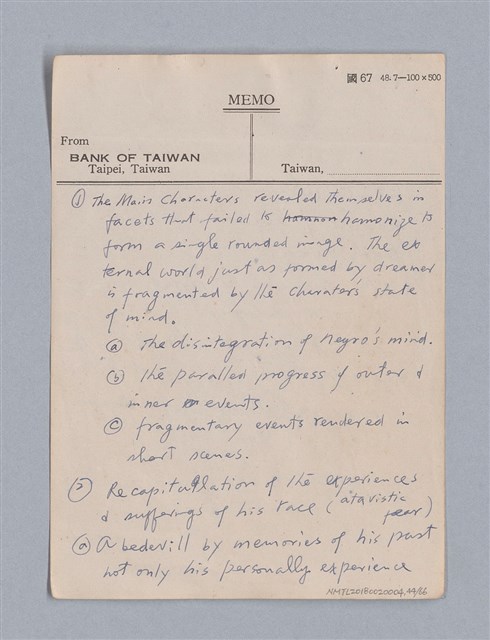 國 67 48.7—100×500
MEMO
From
BANK OF TAIWAN
Taipei, Taiwan
Taiwan,
① The Main Characters revealed themselves in
facets that failed to hamonize to
form a single rounded image. The ex
ternal world just as formed by dreamer
is fragmented by the charater's state
of mind.
ⓐ The disintegration of Negro's mind.
ⓑ The paralled progress of outer &
inner events.
ⓒ fragmentary events rendered in
short scenes.
② Recapitullation of the experiences
& sufferings of his race (atavistic
fear)
ⓐ A bedevill by memories of his past
not only his personally experience
NMTL20180020004.44/86